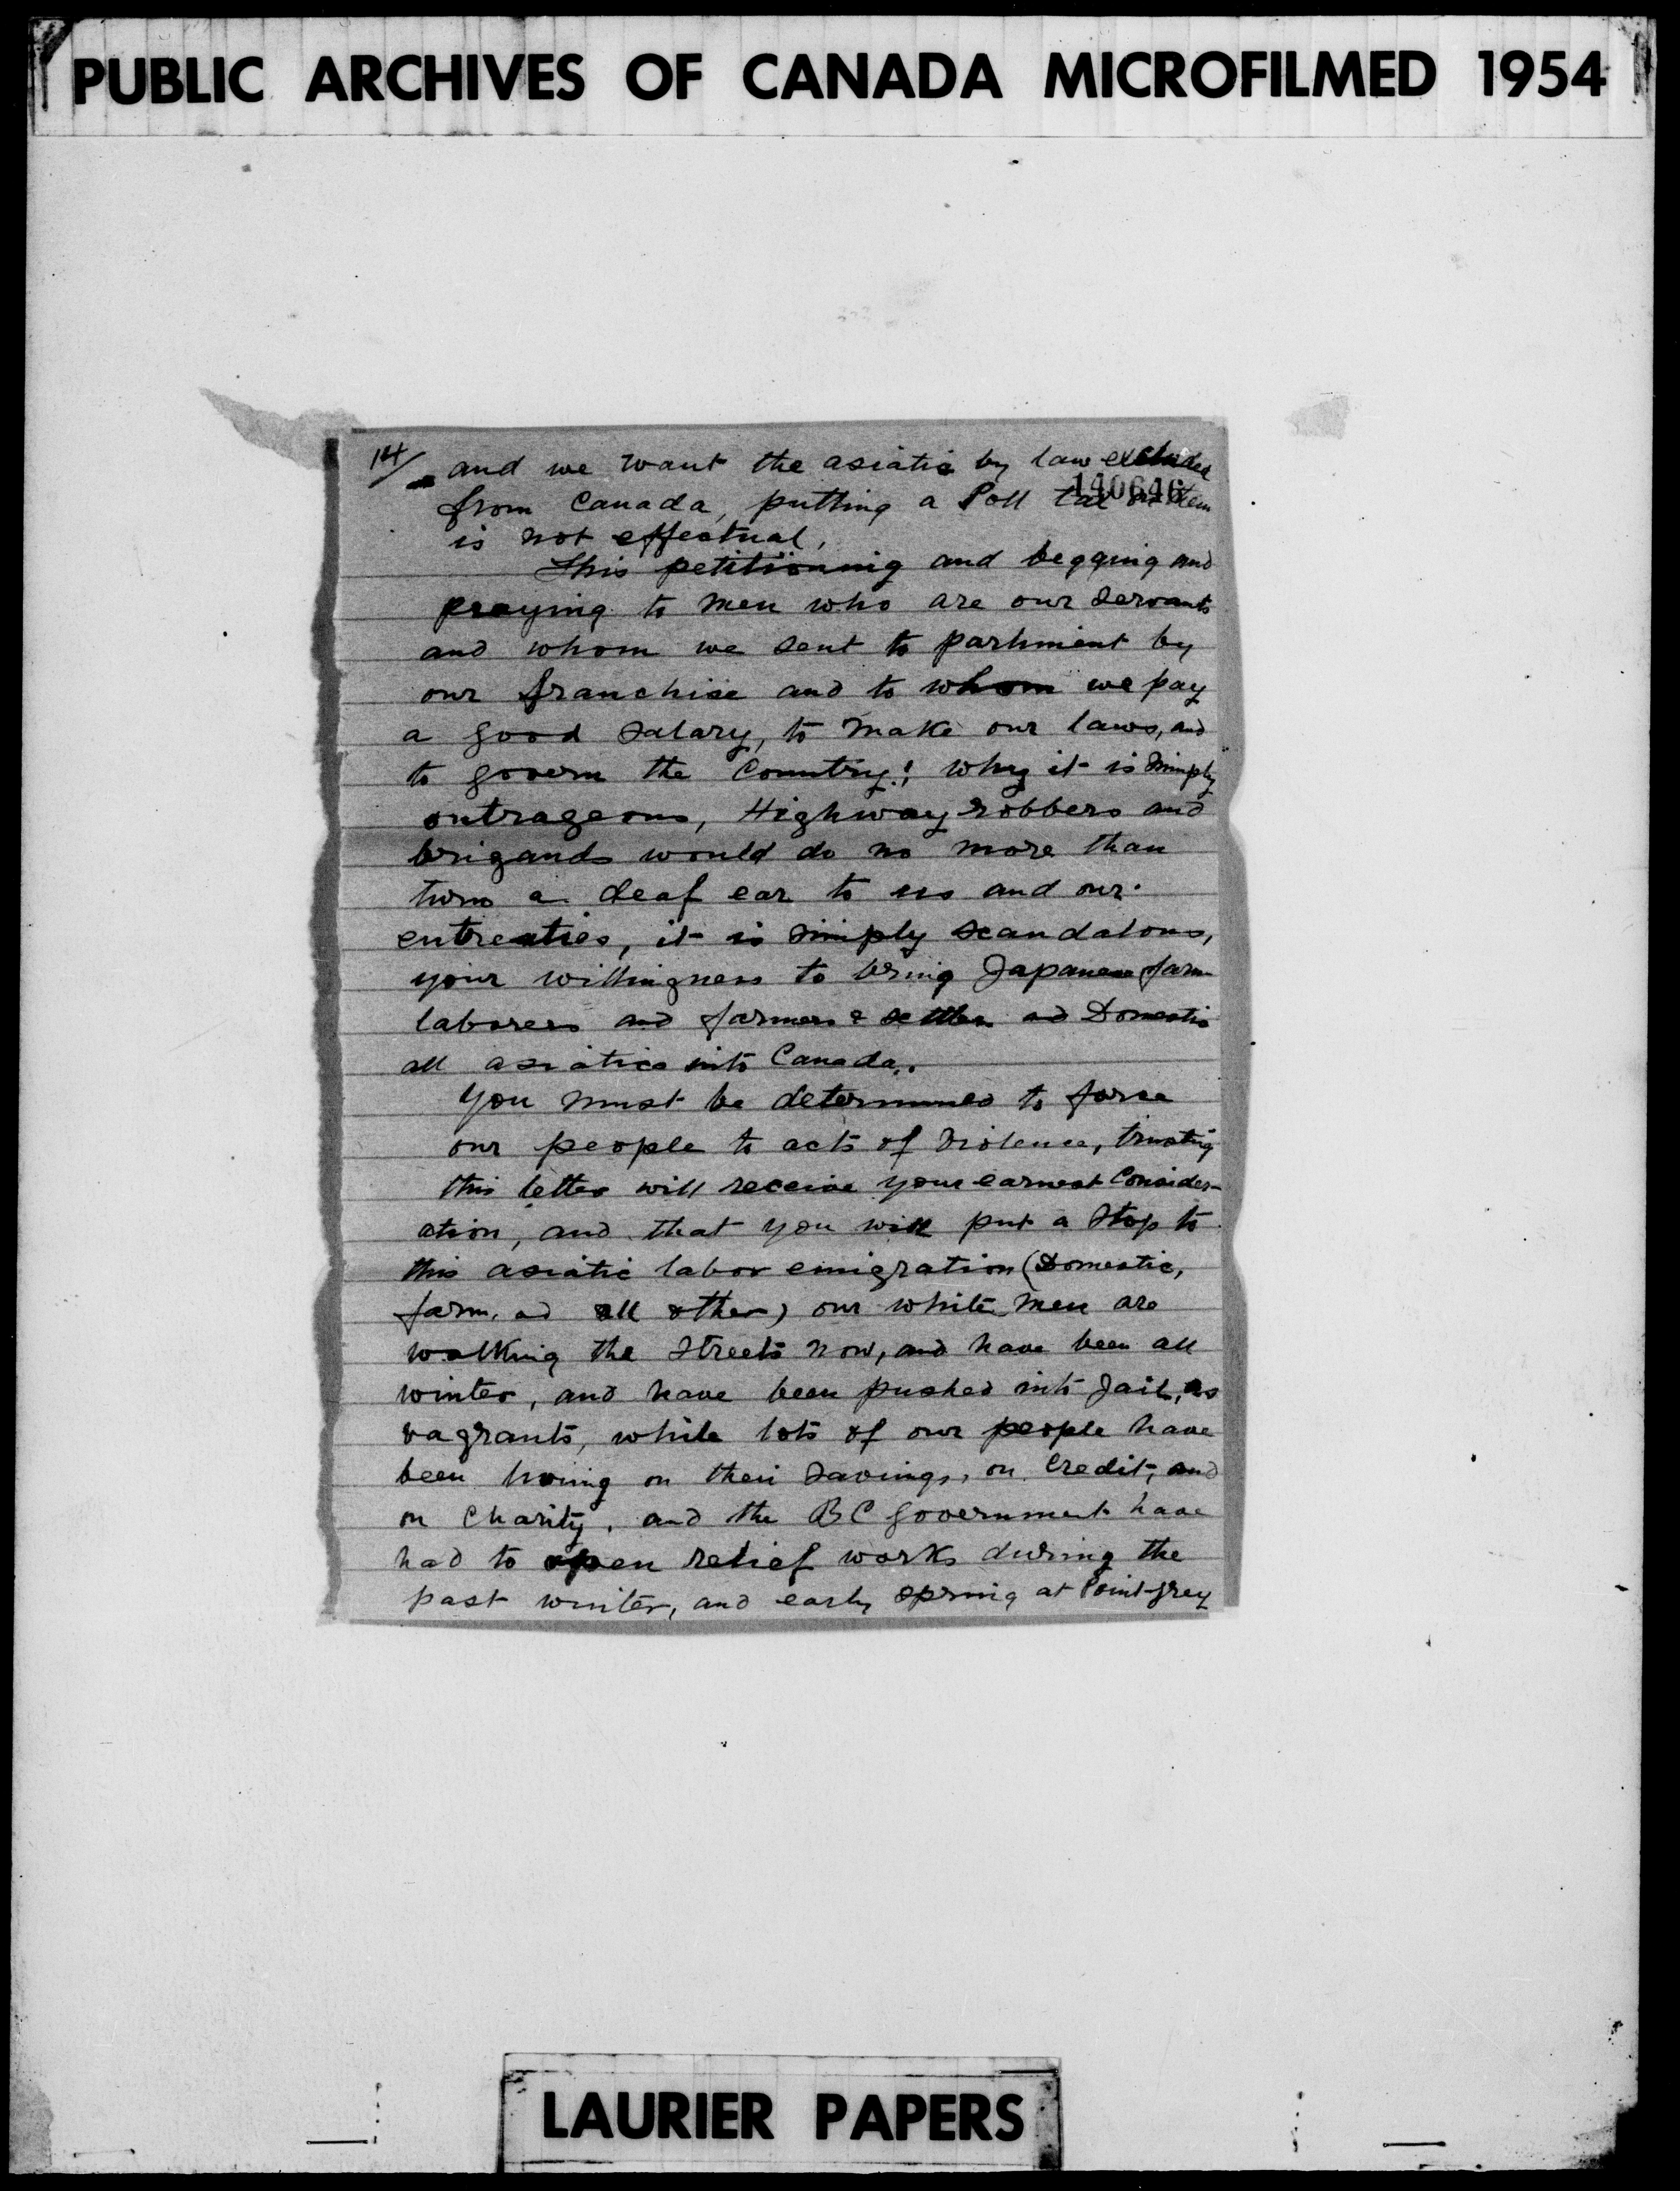 PUBLIC ARCHIVES OF CANADA MICROFILMED 1954
14/ and we want the asiatic by law excluded
140646
from Canada, putting a Poll tax on them
is not effectual,
This petitionnig and begging and
praying to men who are our servants
and whom we sent to parliment by
our franchise and to whom we pay
a good salary, to make our laws, and
to govern the Country! why it is simply
outrageous, Highway robbers and
brigands would do no more than
turn a deaf ear to us and our
entreaties, it is simply scandalous,
your willingness to bring Japanese farm
laborers and farmers & settlers and Domestic
all asiatics into Canada.
You must be determined to force
our people to acts of violence, trusting
this letter will receive your earnest Consider-
ation, and that you will put a stop to
this asiatic labor emigration (Domestic,
farm, and all other) our white men are
walking the streets now, and have been all
winter, and have been pushed into Jail, as
vagrants, while lots of our people have
been living on their savings, on Credit, and
on Charity, and the BC government have
had to open relief works during the
past winter, and early spring at Point-grey
LAURIER PAPERS